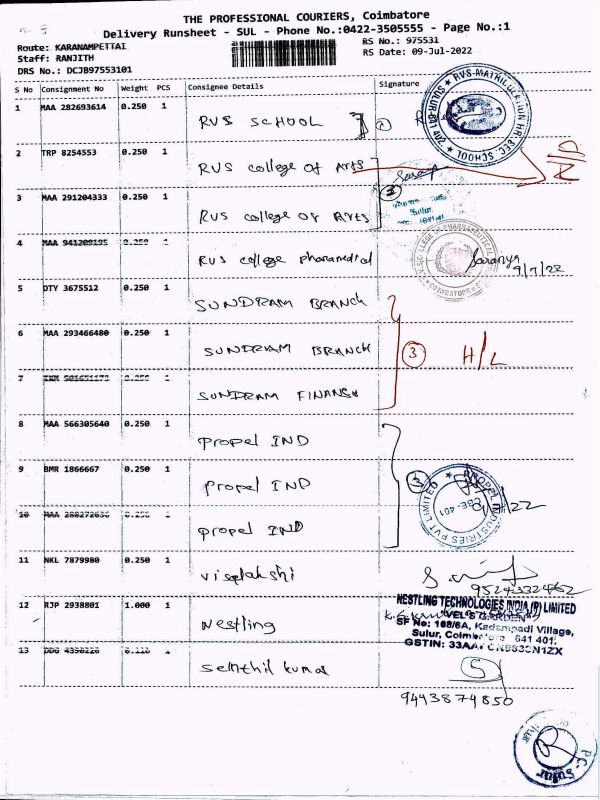 THE PROFESSIONAL COURIERS, Coimbatore
Delivery Runsheet - SUL - Phone No.:0422-3505555 - Page No.:1
Route: KARANAMPETTAI
RS No.: 975531
Staff: RANJITH
RS Date: 09-Jul-2022
DRS No.: DCJB97553101
S No Consignment No Weight PCS Consignee Details Signature
1 MAA 282693614 0.250 1 RVS SCHOOL
2 TRP 8254553 0.250 1 RVS college of Arts
3 MAA 291204333 0.250 1 RVS college of Arts
4 MAA 941209195 0.250 1 RVS college pharamedical Saranya 9/7/22
5 DTY 3675512 0.250 1 SUNDRAM BRANCH
6 MAA 293466480 0.250 1 SUNDRAM BRANCH 3 H/L
7 SUNDRAM FINANSH
8 MAA 566305640 0.250 1 propel IND
9 BMR 1866667 0.250 1 propel IND 3
10 propel IND
11 NKL 7879980 0.250 1 viselakshi
12 RJP 2938801 1.000 1 Nestling
NESTLING TECHNOLOGIES INDIA (P) LIMITED
"VEL'S GARDEN"
SF No: 168/6A, Kadampadi Village,
Sulur, Coimbatore 641 401.
13 Senthil kumar
9443874850
RVS-MATRICULATION HR. SEC. SCHOOL
PROPEL INDUSTRIES PVT LIMITED
CBE-401
P.C-Sulur